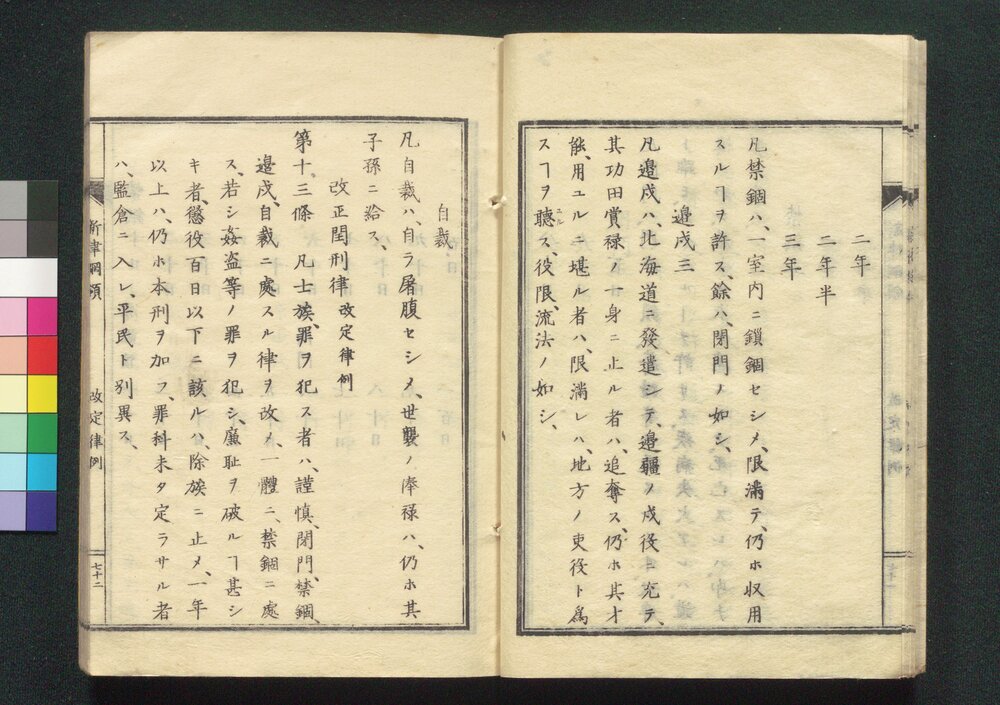 二年
二年半
三年
凡禁錮ハ、一室内ニ鎖錮セシメ、限滿テ、仍ホ収用
スルヿヲ許ス、餘ハ、閉門ノ如シ、
邊戍三
凡邊戍ハ、北海道ニ發遣シテ、邊疆ノ戍役ニ充テ、
其功田賞禄ノ一身ニ止ル者ハ、追奪ス、仍ホ其才
能、用ユルニ堪ル者ハ、限滿レハ、地方ノ吏役ト爲
スヿヲ聽ス、役限、流法ノ如シ、
自裁、
凡自裁ハ、自ラ屠腹セシメ、世襲ノ俸禄ハ、仍ホ其
子孫ニ給ス、
改正閏刑律 改定律例
第十三條 凡士族、罪ヲ犯ス者ハ、謹慎、閉門、禁錮、
邊戍、自裁ニ處スル律ヲ改メ、一體ニ、禁錮ニ處
ス、若シ姦盗等ノ罪ヲ犯シ、廉耻ヲ破ルヿ甚シ
キ者、懲役百日以下ニ該ルハ、除族ニ止メ、一年
以上ハ、仍ホ本刑ヲ加フ、罪科未タ定ラサル者
ハ、監倉ニ入レ、平民ト別異ス、
新律綱領 改定律例 七十二